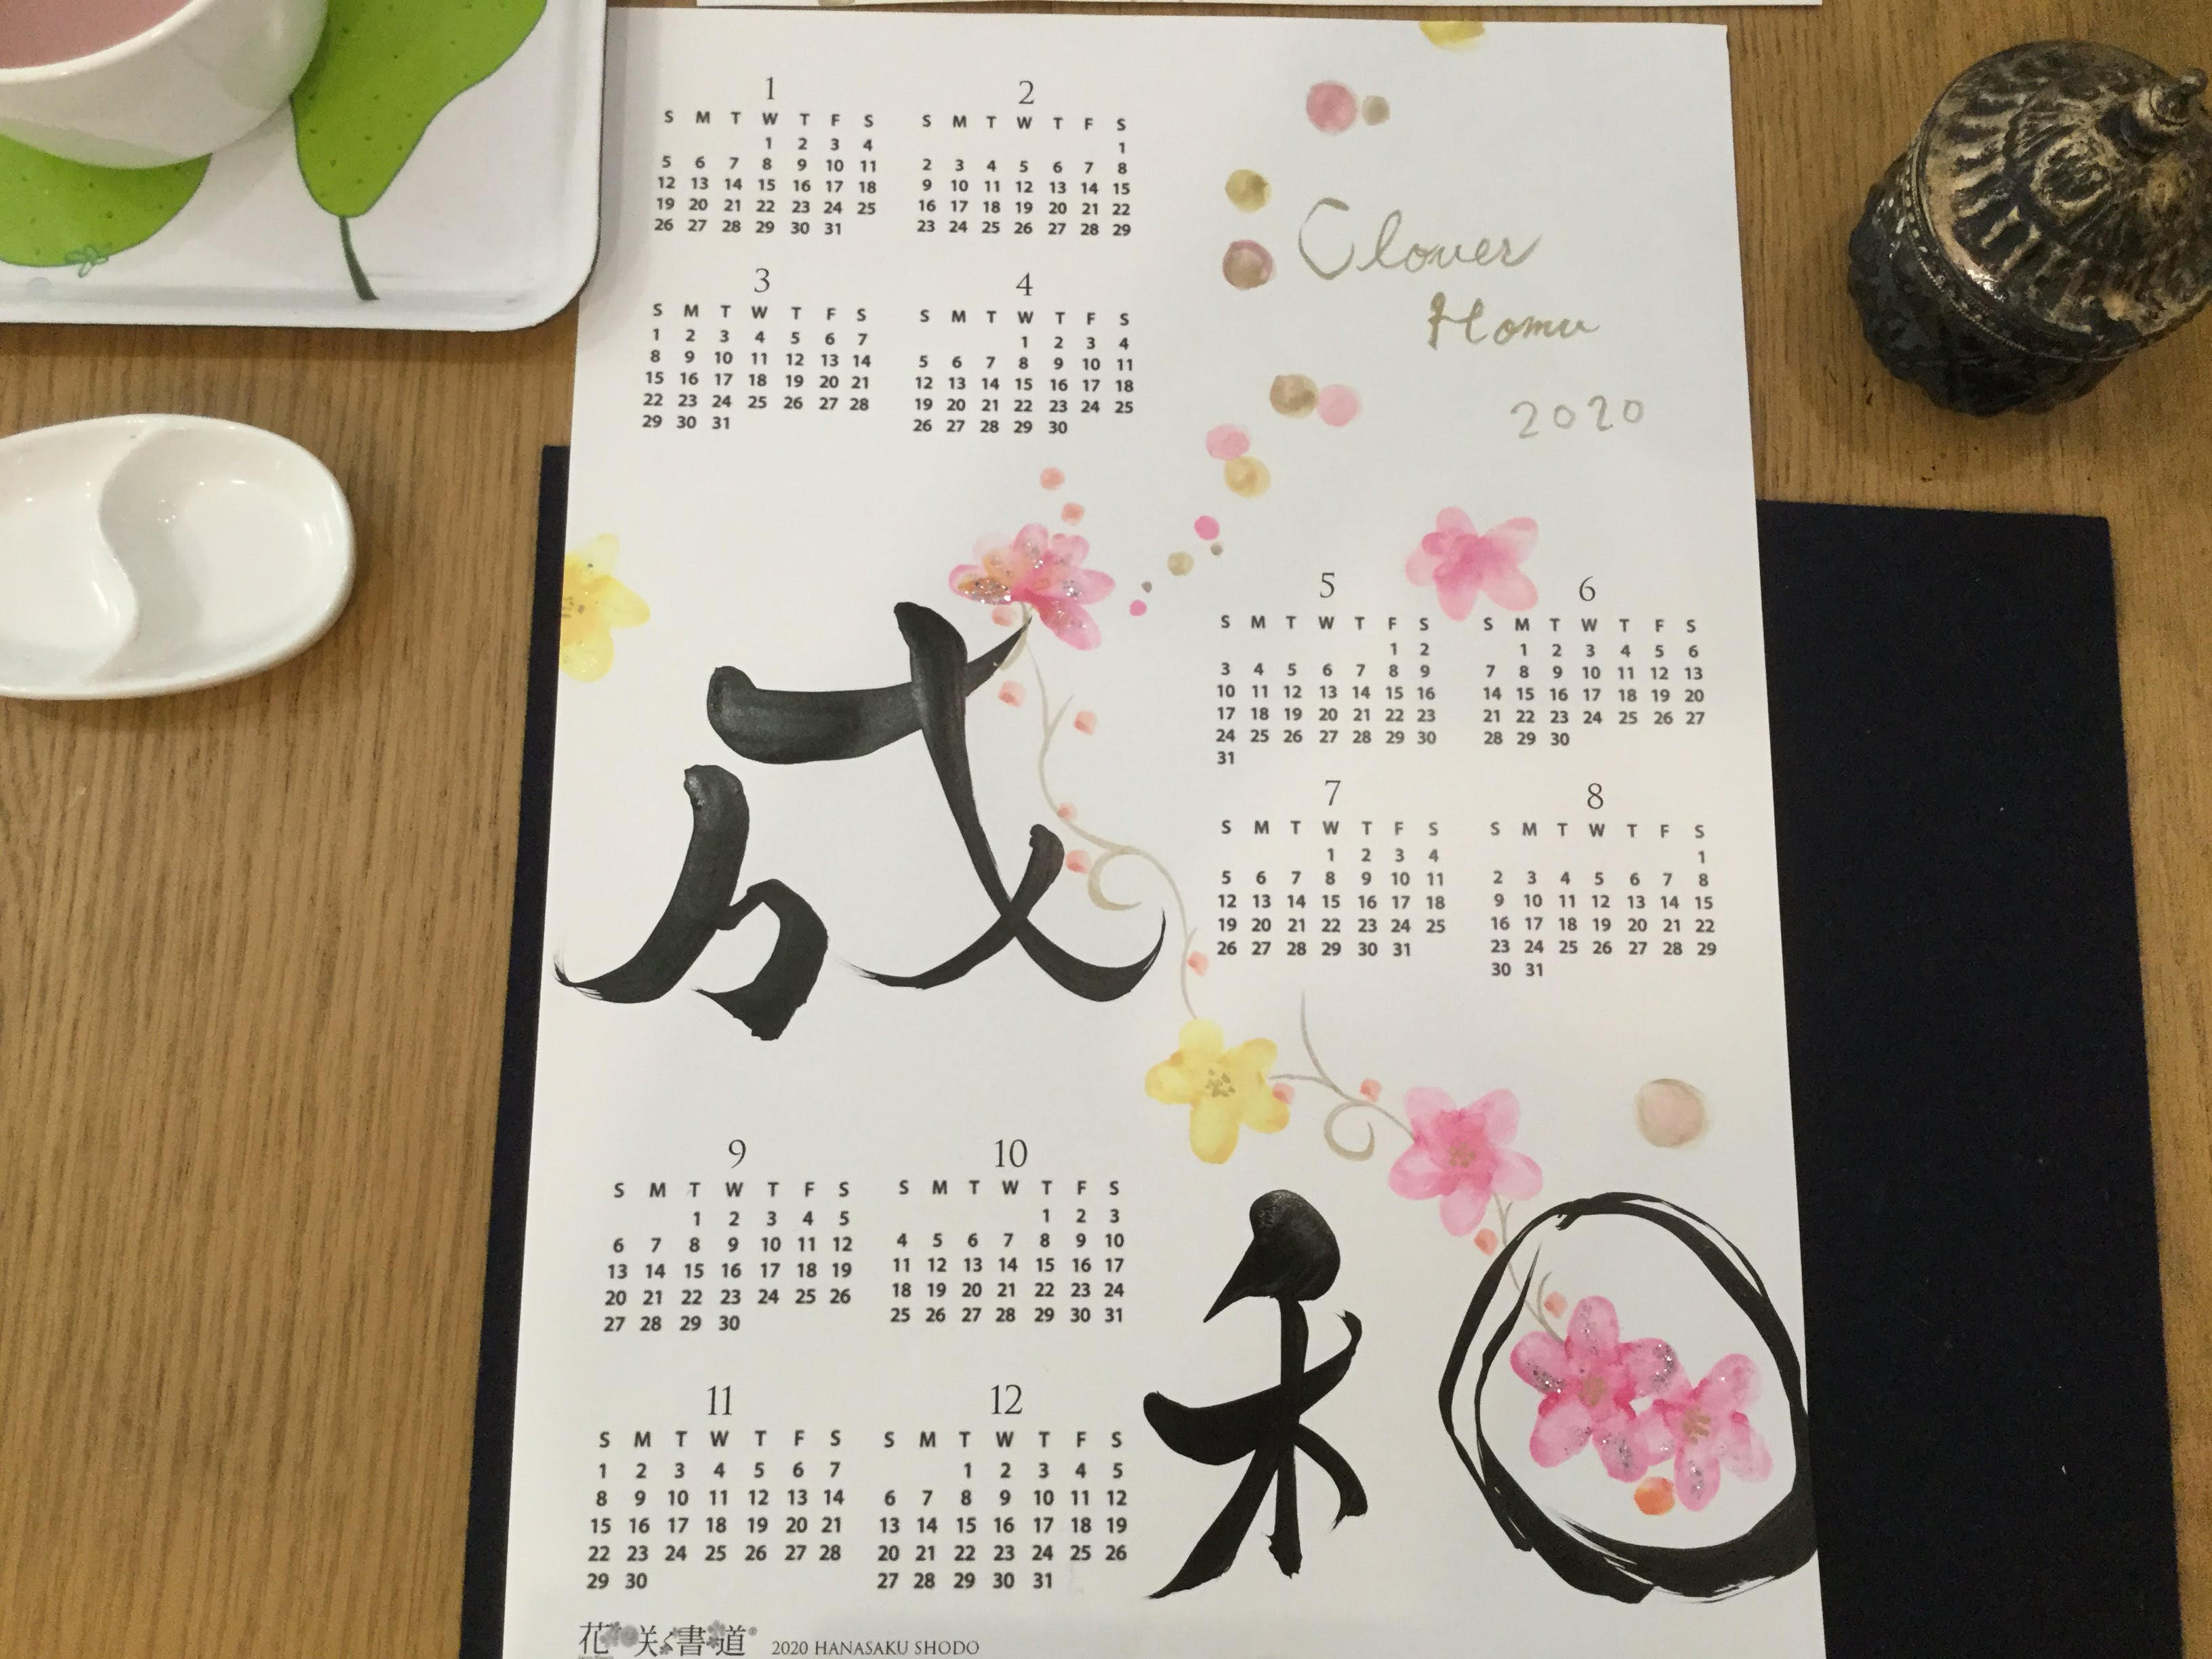 1
S M T W T F S
1 2 3 4
5 6 7 8 9 10 11
12 13 14 15 16 17 18
19 20 21 22 23 24 25
26 27 28 29 30 31
2
S M T W T F S
1
2 3 4 5 6 7 8
9 10 11 12 13 14 15
16 17 18 19 20 21 22
23 24 25 26 27 28 29
Clover
Homu
2020
3
S M T W T F S
1 2 3 4 5 6 7
8 9 10 11 12 13 14
15 16 17 18 19 20 21
22 23 24 25 26 27 28
29 30 31
4
S M T W T F S
1 2 3 4
5 6 7 8 9 10 11
12 13 14 15 16 17 18
19 20 21 22 23 24 25
26 27 28 29 30
成
5
S M T W T F S
1 2
3 4 5 6 7 8 9
10 11 12 13 14 15 16
17 18 19 20 21 22 23
24 25 26 27 28 29 30
31
6
S M T W T F S
1 2 3 4 5 6
7 8 9 10 11 12 13
14 15 16 17 18 19 20
21 22 23 24 25 26 27
28 29 30
7
S M T W T F S
1 2 3 4
5 6 7 8 9 10 11
12 13 14 15 16 17 18
19 20 21 22 23 24 25
26 27 28 29 30 31
8
S M T W T F S
1
2 3 4 5 6 7 8
9 10 11 12 13 14 15
16 17 18 19 20 21 22
23 24 25 26 27 28 29
30 31
9
S M T W T F S
1 2 3 4 5
6 7 8 9 10 11 12
13 14 15 16 17 18 19
20 21 22 23 24 25 26
27 28 29 30
10
S M T W T F S
1 2 3
4 5 6 7 8 9 10
11 12 13 14 15 16 17
18 19 20 21 22 23 24
25 26 27 28 29 30 31
和
11
S M T W T F S
1 2 3 4 5 6 7
8 9 10 11 12 13 14
15 16 17 18 19 20 21
22 23 24 25 26 27 28
29 30
12
S M T W T F S
1 2 3 4 5
6 7 8 9 10 11 12
13 14 15 16 17 18 19
20 21 22 23 24 25 26
27 28 29 30 31
花咲く書道® 2020 HANASAKU SHODO